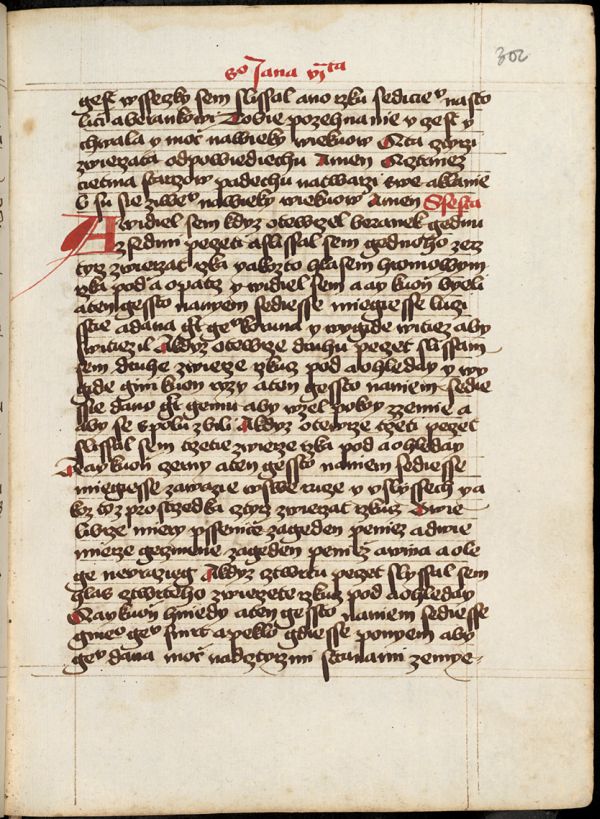 So Jana vjta
302
gest wsseczky sem slissal ano rzku sediciev na sto
lici a berankowi Tobie pozehnanie y czest y
chwala y moć na wieky wiekuow Nta cztyrzi
zwierzata odpowiediechu Amen Nczтmez
cietma starzow padechu na twarzi swe a klanie
li su sie ziwev na wieky wiekuow Amen Sesta
A widiel sem kdyz otewrzel beranek gednu
z sedmi peczeti a slissal sem gednoho zecz
tyrz zwierzat rzka yakzto hlasem hromowym
rzka pod a opatrz y widiel sem a ay kuoń byeli
a ten gessto nanyem sediesse miegiesse luczi
sstie a dana gt gev koruna y wygide witiez aby
switiezil Akdyz otewrze druhu peczet slissam
sem druhe zwierze rzkuz pod a ohleday y wy
gide giny kuon rzy a ten gessto naniem sedie
sse dano gt gemu aby wzel pokoy z zemie a
aby se spolu zbili Akdyz otewrze trzeti peczet
slissal sem trzetie zwierze rzka pod a ohleday
Aay kuoń czerny a ten gessto naniem sediesse
miegiesse zawazie wswe ruce y uslyssech ya
kz tyz prostrzedka cztyrz zwierzat rzkuz Dwie
librze miery pssenice za geden peniez a dwie
mierze geczmene za geden peniez a wina a ole
ge neurazieg Akdyz cztwrtu peczet slyssal sem
hlas cztwrteho zwierzete rzkuz pod a ohleday
Aay kuoń hniedy a ten gessto naniem sediesse
gmeo gev smrt a peklo gdiesse ponyem aby
gev dana moć nad cztyrzmi stranami zemye